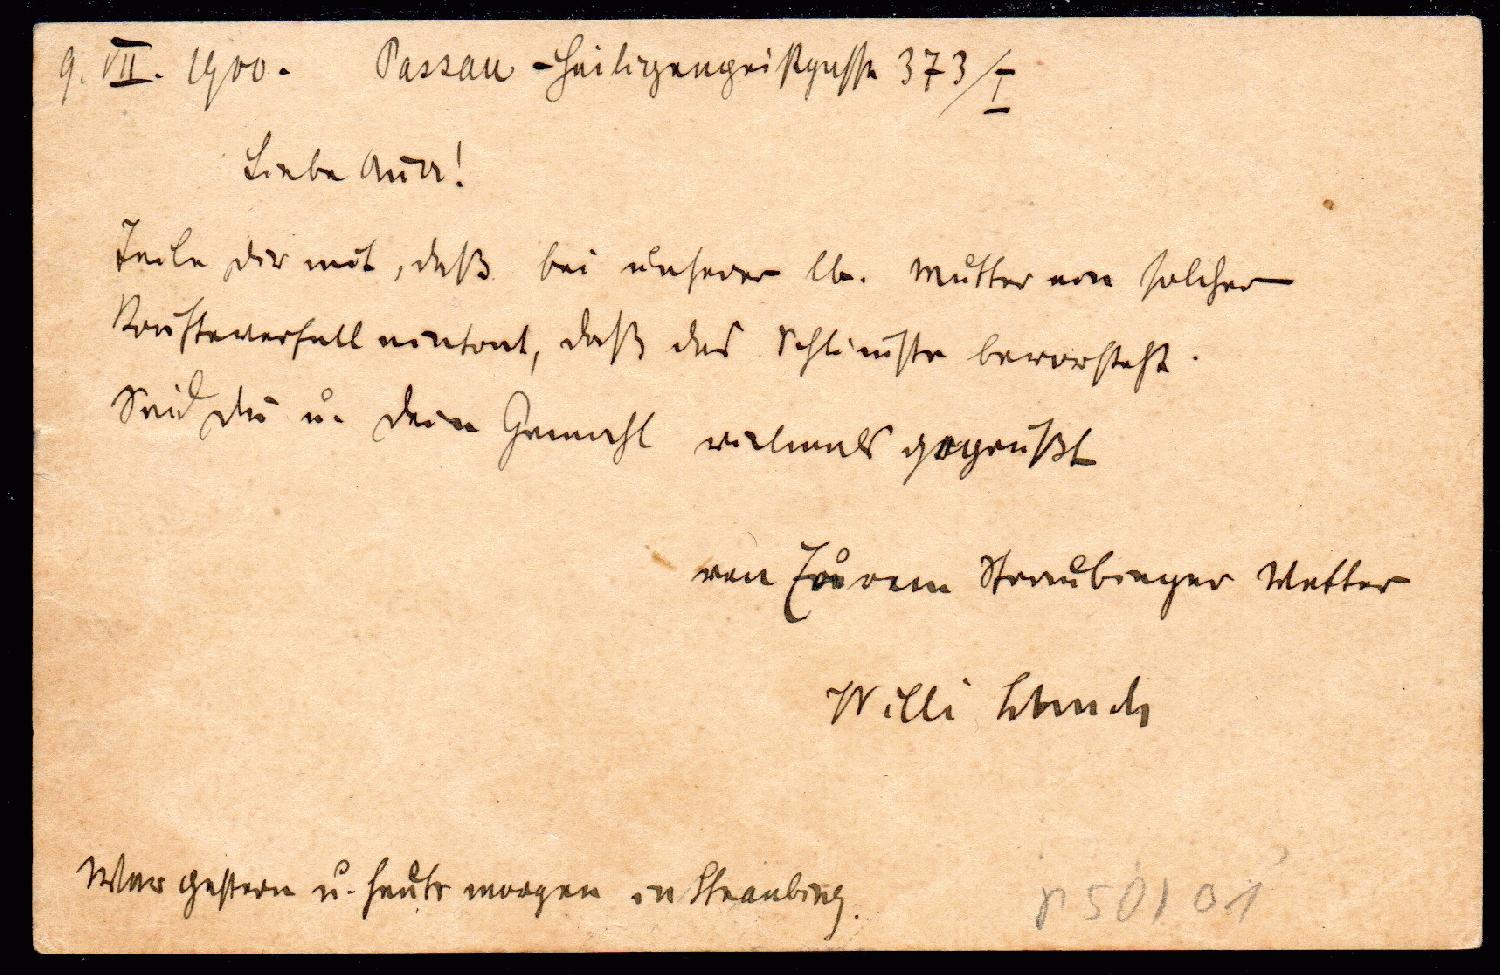 9. VII. 1900. Passau - Heiligengeistgasse 373/I
Liebe
Teile dir mit, daß bei unserer lb. Mutter ein solcher
eintrat, daß das Schlimste bevorsteht.
Seid du u. dein Gemahl vielmals gegrüßt
von Straubinger Vetter
Willi
War gestern u. heute morgen in Straubing.